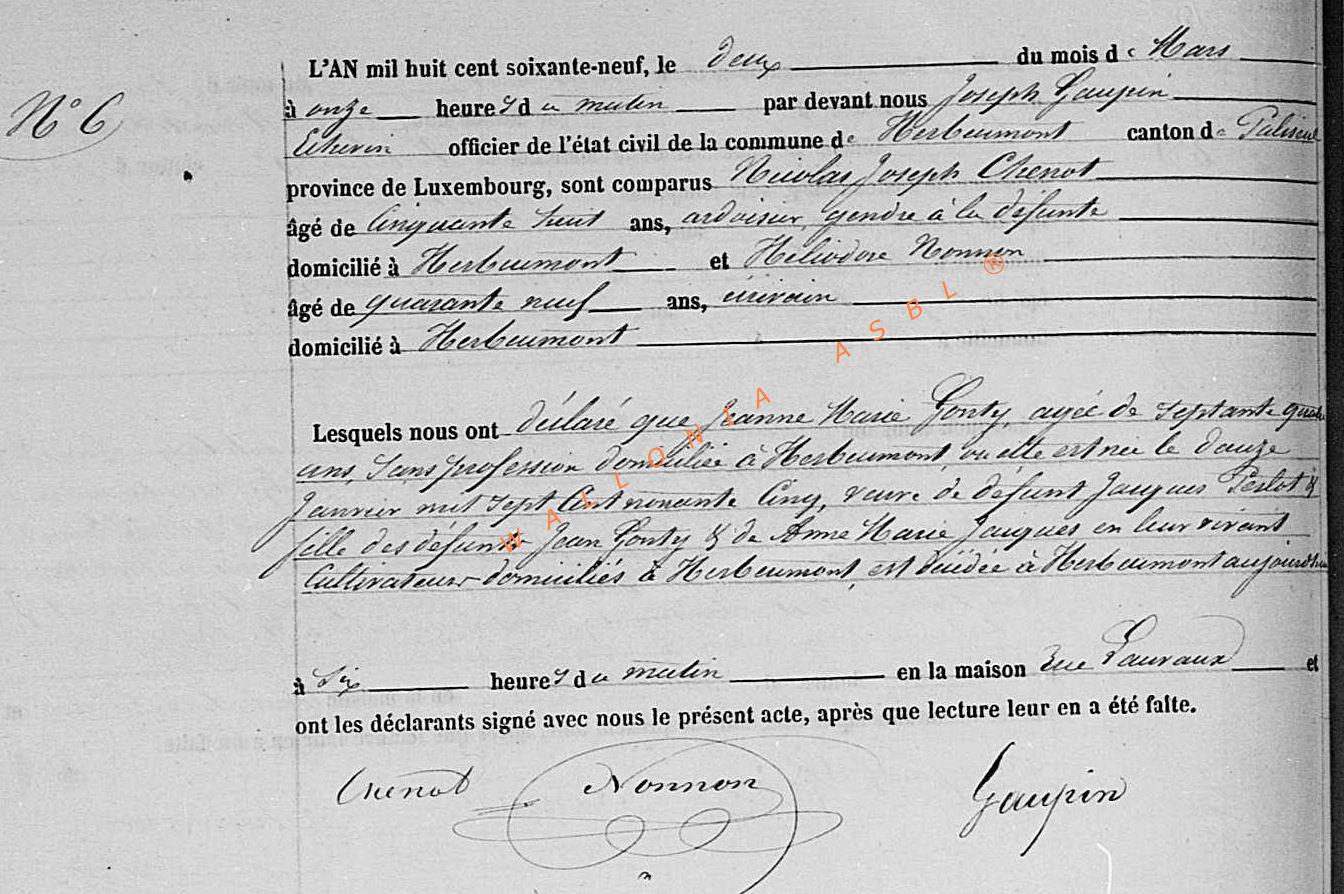 L'AN mil huit cent soixante-neuf, le deux du mois de Mars
N° 6
à onze heures du matin par devant nous Joseph Gaupin
Echevin officier de l'état civil de la commune de Herbeumont canton de Paliseul
province de Luxembourg, sont comparus Nicolas Joseph Chenot
âgé de Cinquante huit ans, ardoisier, gendre à la défunte
domicilié à Herbeumont et Héliodore Nonnon
âgé de quarante neuf ans, écrivain
domicilié à Herbeumont
Lesquels nous ont déclaré que Jeanne Marie Gonty, agée de Septante quatre
ans, Sans profession domiciliée à Herbeumont, ou elle est née le douze
Janvier mil sept Cent nonante Cinq, veuve de défunt Jacques Perlot &
fille des défunts Jean Gonty & de Anne Marie Jacques en leur vivant
Cultivateurs domiciliés à Herbeumont, est décédée à Herbeumont aujourd'hui
à Six heures du matin en la maison Rue Lauvaux et
ont les déclarants signé avec nous le présent acte, après que lecture leur en a été faite.
Chenot Nonnon Gaupin
WALLONIA ASBL ®